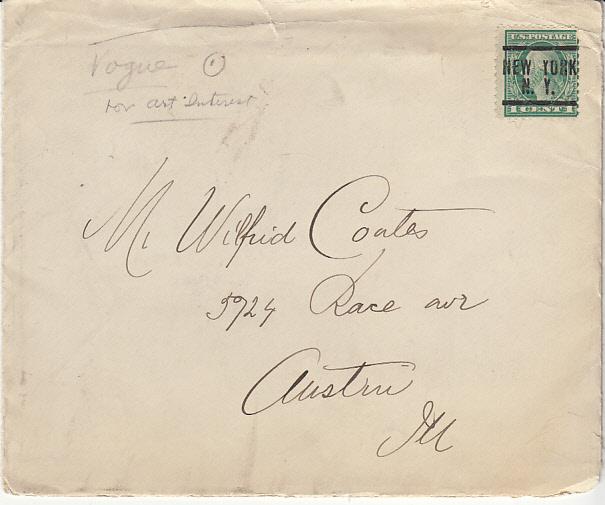 U.S. POSTAGE
NEW YORK
N. Y.
1 CENT 1
Vogue
for art Interest
Mr Wilfrid Coates
5924 Race ave
Austin
Ill